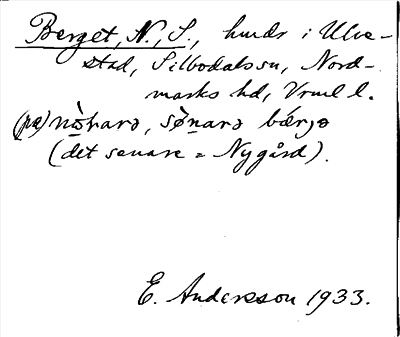 Berget, N., S., hmdr i Ulve-
stad, Silbodals sn, Nord-
marks hd, Vrml l.
(pɑ) nòrarə, sø̀narə bǽrjə
(det senare = Nygård).
E. Andersson 1933.